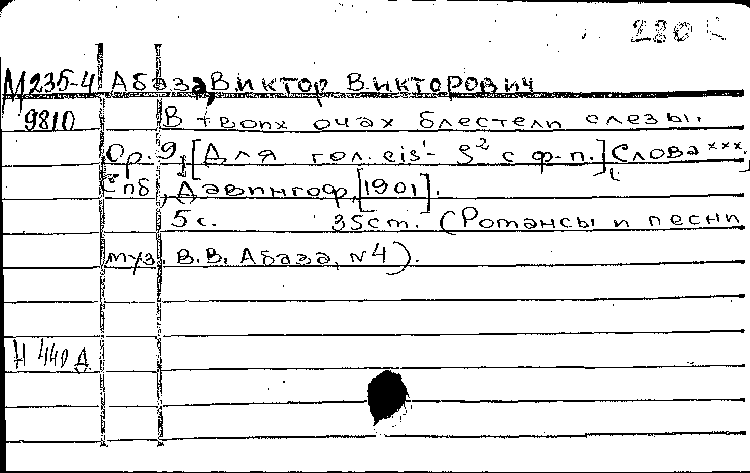 280 К
М235-4 Абаза, Виктор Викторович
9810 В твоих очах блестели слезы.
Ор. 9, [Для гол. eis¹- g² с ф-п.] Слова ***.
Спб, Давингоф, [1901].
5 с. 35 cm. (Романсы и песни
муз. В.В. Абаза, №4).
Н 440 д